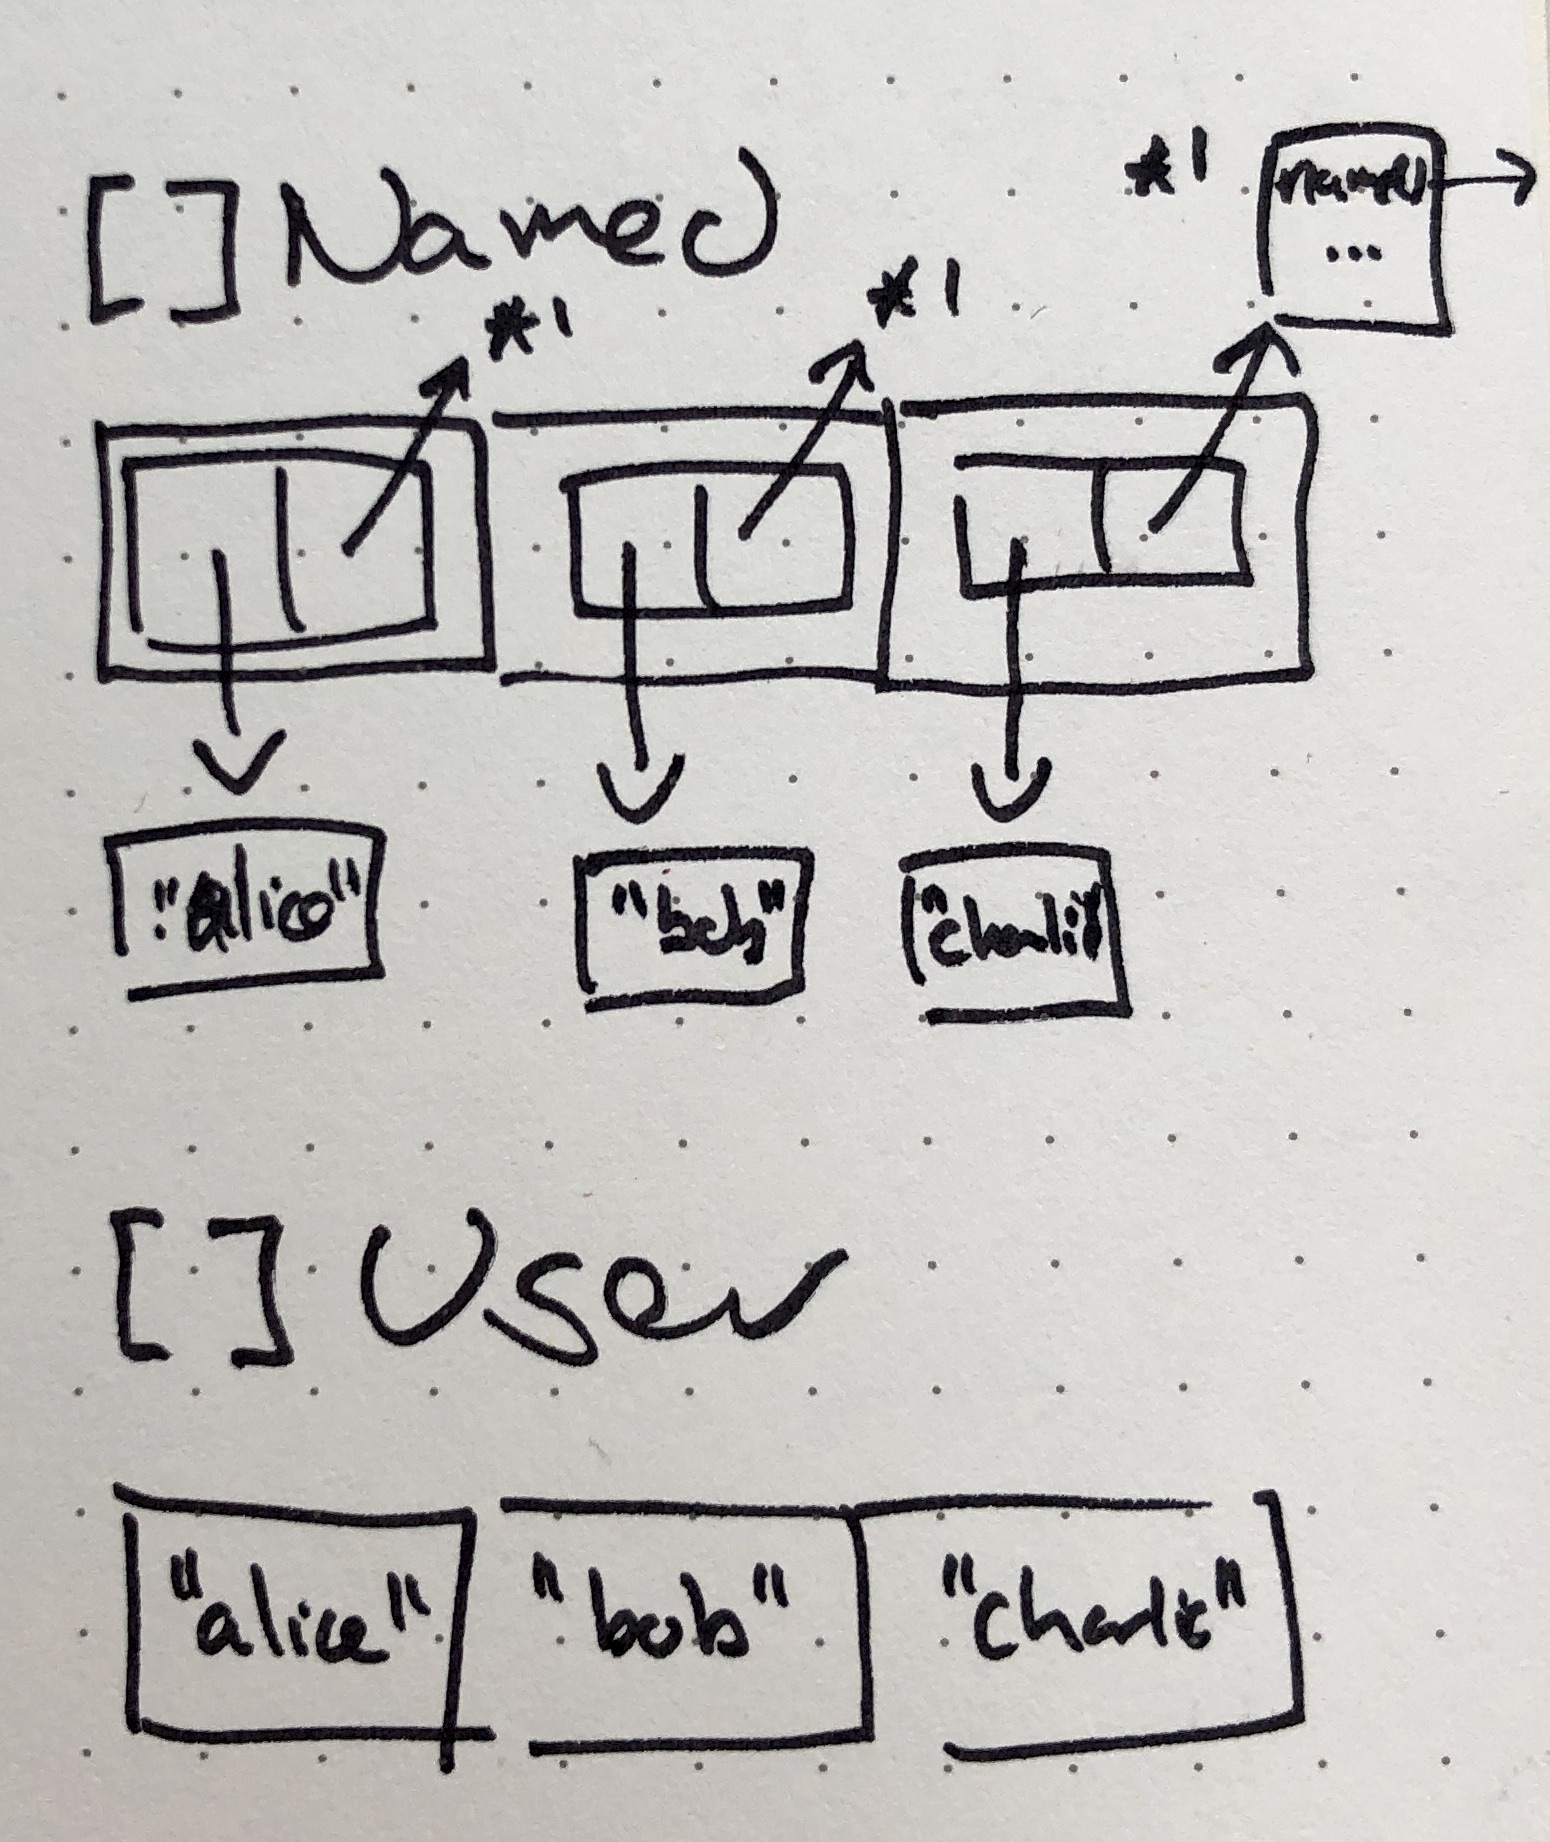 [] Named
*1
name()
...
*1
*1
"alice"
"bob"
"charlie"
[] User
"alice"
"bob"
"charlie"